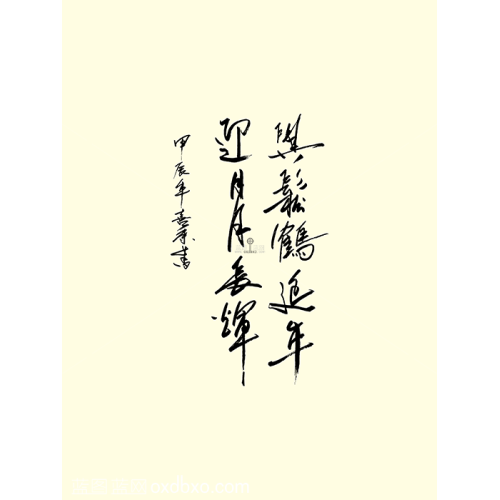 與鬆鶴延年
迎日月長輝
甲辰年書